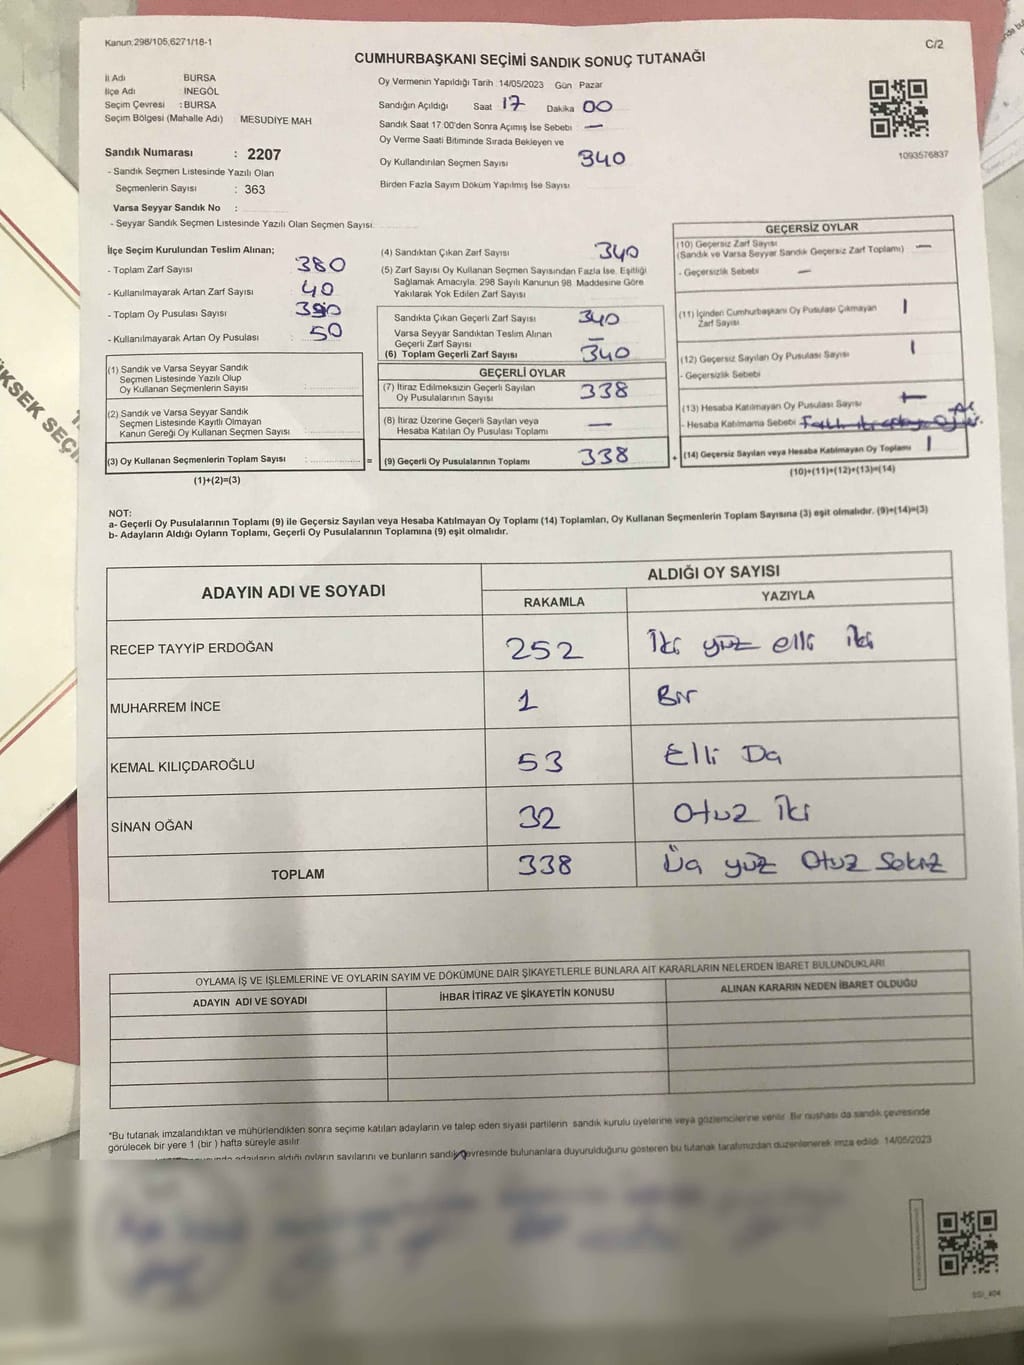 Kanun:298/105,6271/18-1
C/2
CUMHURBAŞKANI SEÇİMİ SANDIK SONUÇ TUTANAĞI
İl Adı BURSA
İlçe Adı İNEGÖL
Seçim Çevresi : BURSA
Seçim Bölgesi (Mahalle Adı) MESUDİYE MAH
Sandık Numarası : 2207
- Sandık Seçmen Listesinde Yazılı Olan
Seçmenlerin Sayısı : 363
Varsa Seyyar Sandık No :
- Seyyar Sandık Seçmen Listesinde Yazılı Olan Seçmen Sayısı:
Oy Vermenin Yapıldığı Tarih 14/05/2023 Gün Pazar
Sandığın Açıldığı Saat 17 Dakika 00
Sandık Saat 17:00'den Sonra Açımış İse Sebebi —
Oy Verme Saati Bitiminde Sırada Bekleyen ve
Oy Kullandırılan Seçmen Sayısı 340
Birden Fazla Sayım Döküm Yapılmış İse Sayısı
1093576837
İlçe Seçim Kurulundan Teslim Alınan;
- Toplam Zarf Sayısı 380
- Kullanılmayarak Artan Zarf Sayısı 40
- Toplam Oy Pusulası Sayısı 390
- Kullanılmayarak Artan Oy Pusulası : 50
(1) Sandık ve Varsa Seyyar Sandık
Seçmen Listesinde Yazılı Olup
Oy Kullanan Seçmenlerin Sayısı :
(2) Sandık ve Varsa Seyyar Sandık
Seçmen Listesinde Kayıtlı Olmayan
Kanun Gereği Oy Kullanan Seçmen Sayısı
(3) Oy Kullanan Seçmenlerin Toplam Sayısı :
(1)+(2)=(3)
(4) Sandıktan Çıkan Zarf Sayısı 340
(5) Zarf Sayısı Oy Kullanan Seçmen Sayısından Fazla İse, Eşitliği
Sağlamak Amacıyla, 298 Sayılı Kanunun 98. Maddesine Göre
Yakılarak Yok Edilen Zarf Sayısı
Sandıkta Çıkan Geçerli Zarf Sayısı 340
Varsa Seyyar Sandıktan Teslim Alınan
Geçerli Zarf Sayısı —
(6) Toplam Geçerli Zarf Sayısı 340
GEÇERLİ OYLAR
(7) İtiraz Edilmeksizin Geçerli Sayılan
Oy Pusulalarının Sayısı 338
(8) İtiraz Üzerine Geçerli Sayılan veya
Hesaba Katılan Oy Pusulası Toplamı —
= (9) Geçerli Oy Pusulalarının Toplamı 338
GEÇERSİZ OYLAR
(10) Geçersiz Zarf Sayısı
(Sandık ve Varsa Seyyar Sandık Geçersiz Zarf Toplamı) —
- Geçersizlik Sebebi —
(11) İçinden Cumhurbaşkanı Oy Pusulası Çıkmayan
Zarf Sayısı 1
(12) Geçersiz Sayılan Oy Pusulası Sayısı 1
- Geçersizlik Sebebi
(13) Hesaba Katılmayan Oy Pusulası Sayısı
- Hesaba Katılmama Sebebi
+ (14) Geçersiz Sayılan veya Hesaba Katılmayan Oy Toplamı 1
(10)+(11)+(12)+(13)=(14)
NOT:
a- Geçerli Oy Pusulalarının Toplamı (9) ile Geçersiz Sayılan veya Hesaba Katılmayan Oy Toplamı (14) Toplamları, Oy Kullanan Seçmenlerin Toplam Sayısına (3) eşit olmalıdır. (9)+(14)=(3)
b- Adayların Aldığı Oyların Toplamı, Geçerli Oy Pusulalarının Toplamına (9) eşit olmalıdır.
ADAYIN ADI VE SOYADI
ALDIĞI OY SAYISI
RAKAMLA YAZIYLA
RECEP TAYYİP ERDOĞAN 252 İki yüz elli iki
MUHARREM İNCE 1 Bir
KEMAL KILIÇDAROĞLU 53 Elli Üç
SİNAN OĞAN 32 Otuz İki
TOPLAM 338 Üç yüz Otuz Sekiz
OYLAMA İŞ VE İŞLEMLERİNE VE OYLARIN SAYIM VE DÖKÜMÜNE DAİR ŞİKAYETLERLE BUNLARA AİT KARARLARIN NELERDEN İBARET BULUNDUKLARI
ADAYIN ADI VE SOYADI İHBAR İTİRAZ VE ŞİKAYETİN KONUSU ALINAN KARARIN NEDEN İBARET OLDUĞU
*Bu tutanak imzalandıktan ve mühürlendikten sonra seçime katılan adayların ve talep eden siyasi partilerin sandık kurulu üyelerine veya gözlemcilerine verilir. Bir nüshası da sandık çevresinde
görülecek bir yere 1 (bir ) hafta süreyle asılır.
adayların aldığı oyların sayılarını ve bunların sandık çevresinde bulunanlara duyurulduğunu gösteren bu tutanak tarafımızdan düzenlenerek imza edildi. 14/05/2023